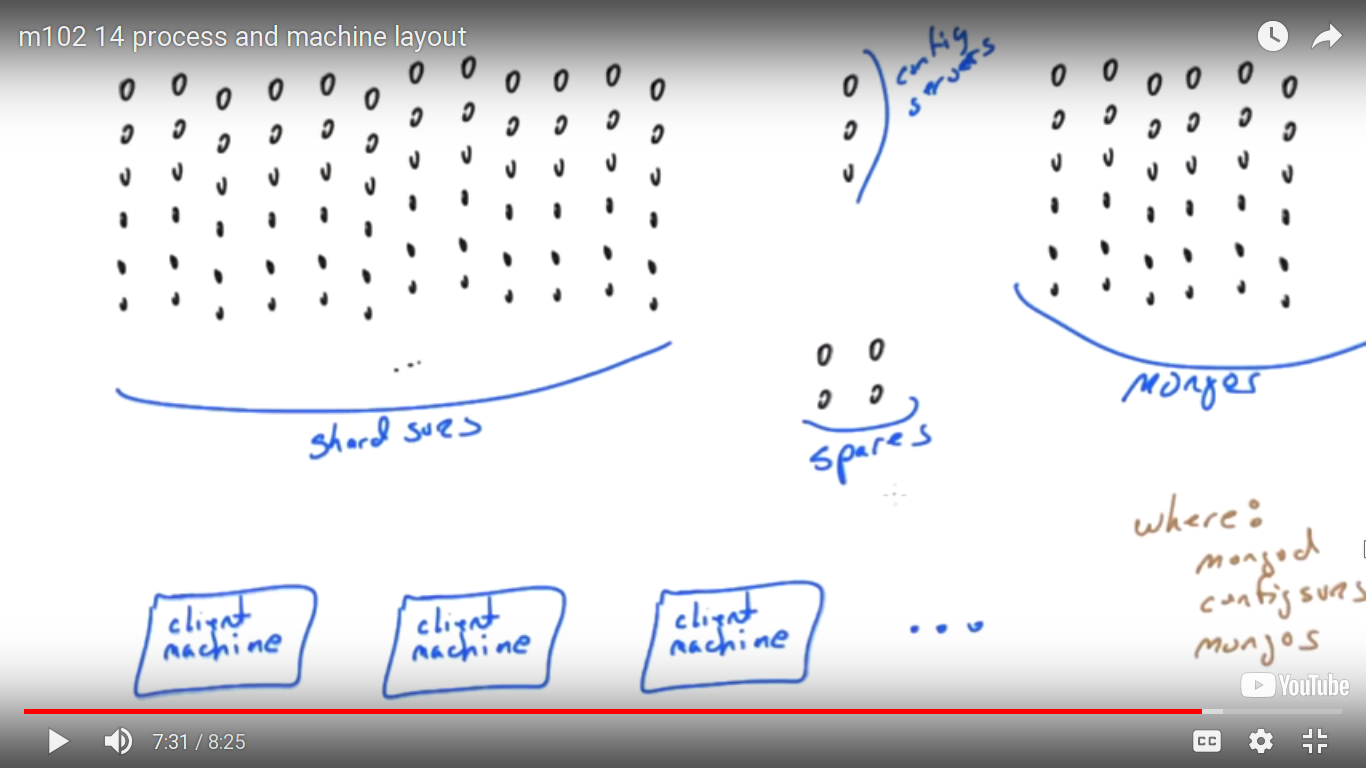 m102 14 process and machine layout
config
servers
mongos
shard svrs
spares
where:
mongod
config svrs
mongos
client
machine
client
machine
client
machine
YouTube
7:31 / 8:25
CC